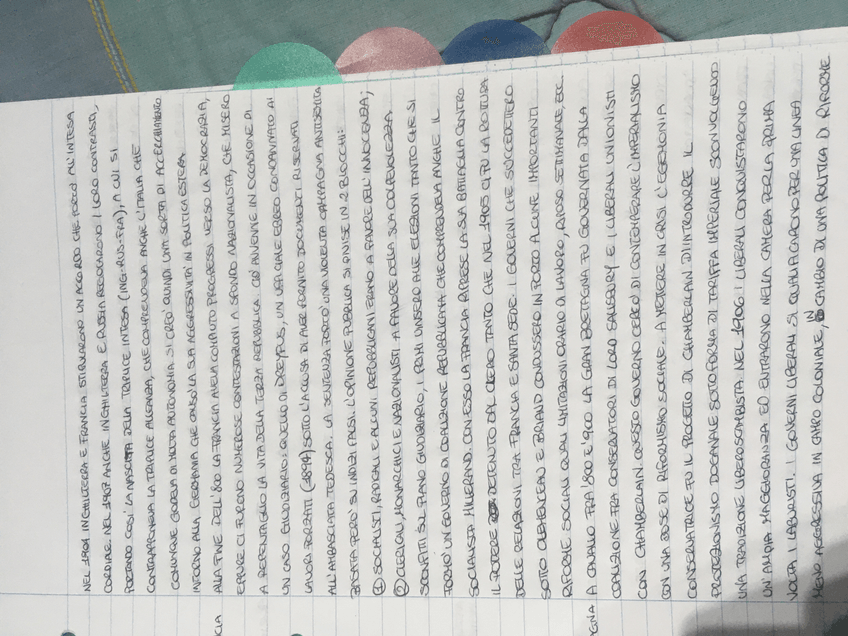 NEL 1904 INGHILTERRA E FRANCIA STIPULARONO UN ACCORDO CHE PORTÒ ALL'INTESA
CORDIALE. NEL 1907 ANCHE INGHILTERRA E RUSSIA RISOLSERO I LORO CONTRASTI,
PORTANDO COSÌ LA NASCITA DELLA TRIPLICE INTESA (ING-RUS-FRA), A CUI SI
CONTRAPPONEVA LA TRIPLICE ALLEANZA, CHE COMPRENDEVA ANCHE L'ITALIA CHE
COMUNQUE GODEVA DI MOLTA AUTONOMIA SI CREÒ QUINDI UNA SORTA DI ACCERCHIAMENTO
INTORNO ALLA GERMANIA CHE CAUSÒ LA SUA AGGRESSIVITÀ IN POLITICA ESTERA
CIA ALLA FINE DELL'800 LA FRANCIA AVEVA COMPIUTO PROGRESSI VERSO LA DEMOCRAZIA,
EPPURE CI FURONO NUMEROSE CONTESTAZIONI A SFONDO NAZIONALISTA, CHE MISERO
A REPENTAGLIO LA VITA DELLA TERZA REPUBBLICA. CIÒ AVVENNE IN OCCASIONE DI
UN CASO GIUDIZIARIO: QUELLO DI DREYFUS, UN UFFICIALE EBREO CONDANNATO AI
LAVORI FORZATI (1894) SOTTO L'ACCUSA DI AVER FORNITO DOCUMENTI RISERVATI
ALL'AMBASCIATA TEDESCA. LA SENTENZA PORTÒ UNA VIOLENTA CAMPAGNA ANTISEMITA
BASATA PERÒ SU INDIZI FALSI. L'OPINIONE PUBBLICA SI DIVISE IN 2 BLOCCHI:
① SOCIALISTI, RADICALI E ALCUNI REPUBBLICANI ERANO A FAVORE DELL'INNOCENZA;
② CLERICALI, MONARCHICI E NAZIONALISTI A FAVORE DELLA SUA COLPEVOLEZZA.
SCONFITTI SUL PIANO GIUDIZIARIO, I PRIMI VINSERO ALLE ELEZIONI TANTO CHE SI
FORMÒ UN GOVERNO DI COALIZIONE REPUBBLICANA CHE COMPRENDEVA ANCHE IL
SOCIALISTA MILLERAND. CON ESSO LA FRANCIA RIPRESE LA SUA BATTAGLIA CONTRO
IL POTERE DETENUTO DAL CLERO TANTO CHE NEL 1905 CI FU LA ROTTURA
DELLE RELAZIONI TRA FRANCIA E SANTA SEDE. I GOVERNI CHE SUCCEDETTERO
SOTTO CLEMENCEAU E BRIAND CONDUSSERO IN PORTO ALCUNE IMPORTANTI
RIFORME SOCIALI QUALI LIMITAZIONI ORARIO DI LAVORO, RIPOSO SETTIMANALE, ETC.
GNA A CAVALLO FRA 1800 E 900 LA GRAN BRETAGNA FU GOVERNATA DALLA
COALIZIONE FRA CONSERVATORI DI LORD SALISBURY E I LIBERALI UNIONISTI
CON CHAMBERLAIN. QUESTO GOVERNO CERCÒ DI CONTEMPERARE L'IMPERIALISMO
CON UNA DOSE DI RIFORMISMO SOCIALE. A METTERE IN CRISI L'EGEMONIA
CONSERVATRICE FU IL PROGETTO DI CHAMBERLAIN DI INTRODURRE IL
PROTEZIONISMO DOGANALE SOTTO FORMA DI TARIFFA IMPERIALE SCONVOLGENDO
UNA TRADIZIONE LIBEROSCAMBISTA. NEL 1906 I LIBERALI CONQUISTARONO
UN'AMPIA MAGGIORANZA ED ENTRARONO NELLA CAMERA PER LA PRIMA
VOLTA I LABURISTI. I GOVERNI LIBERALI SI QUALIFICARONO PER UNA LINEA
MENO AGGRESSIVA IN CAMPO COLONIALE, IN CAMBIO DI UNA POLITICA DI RIFORME